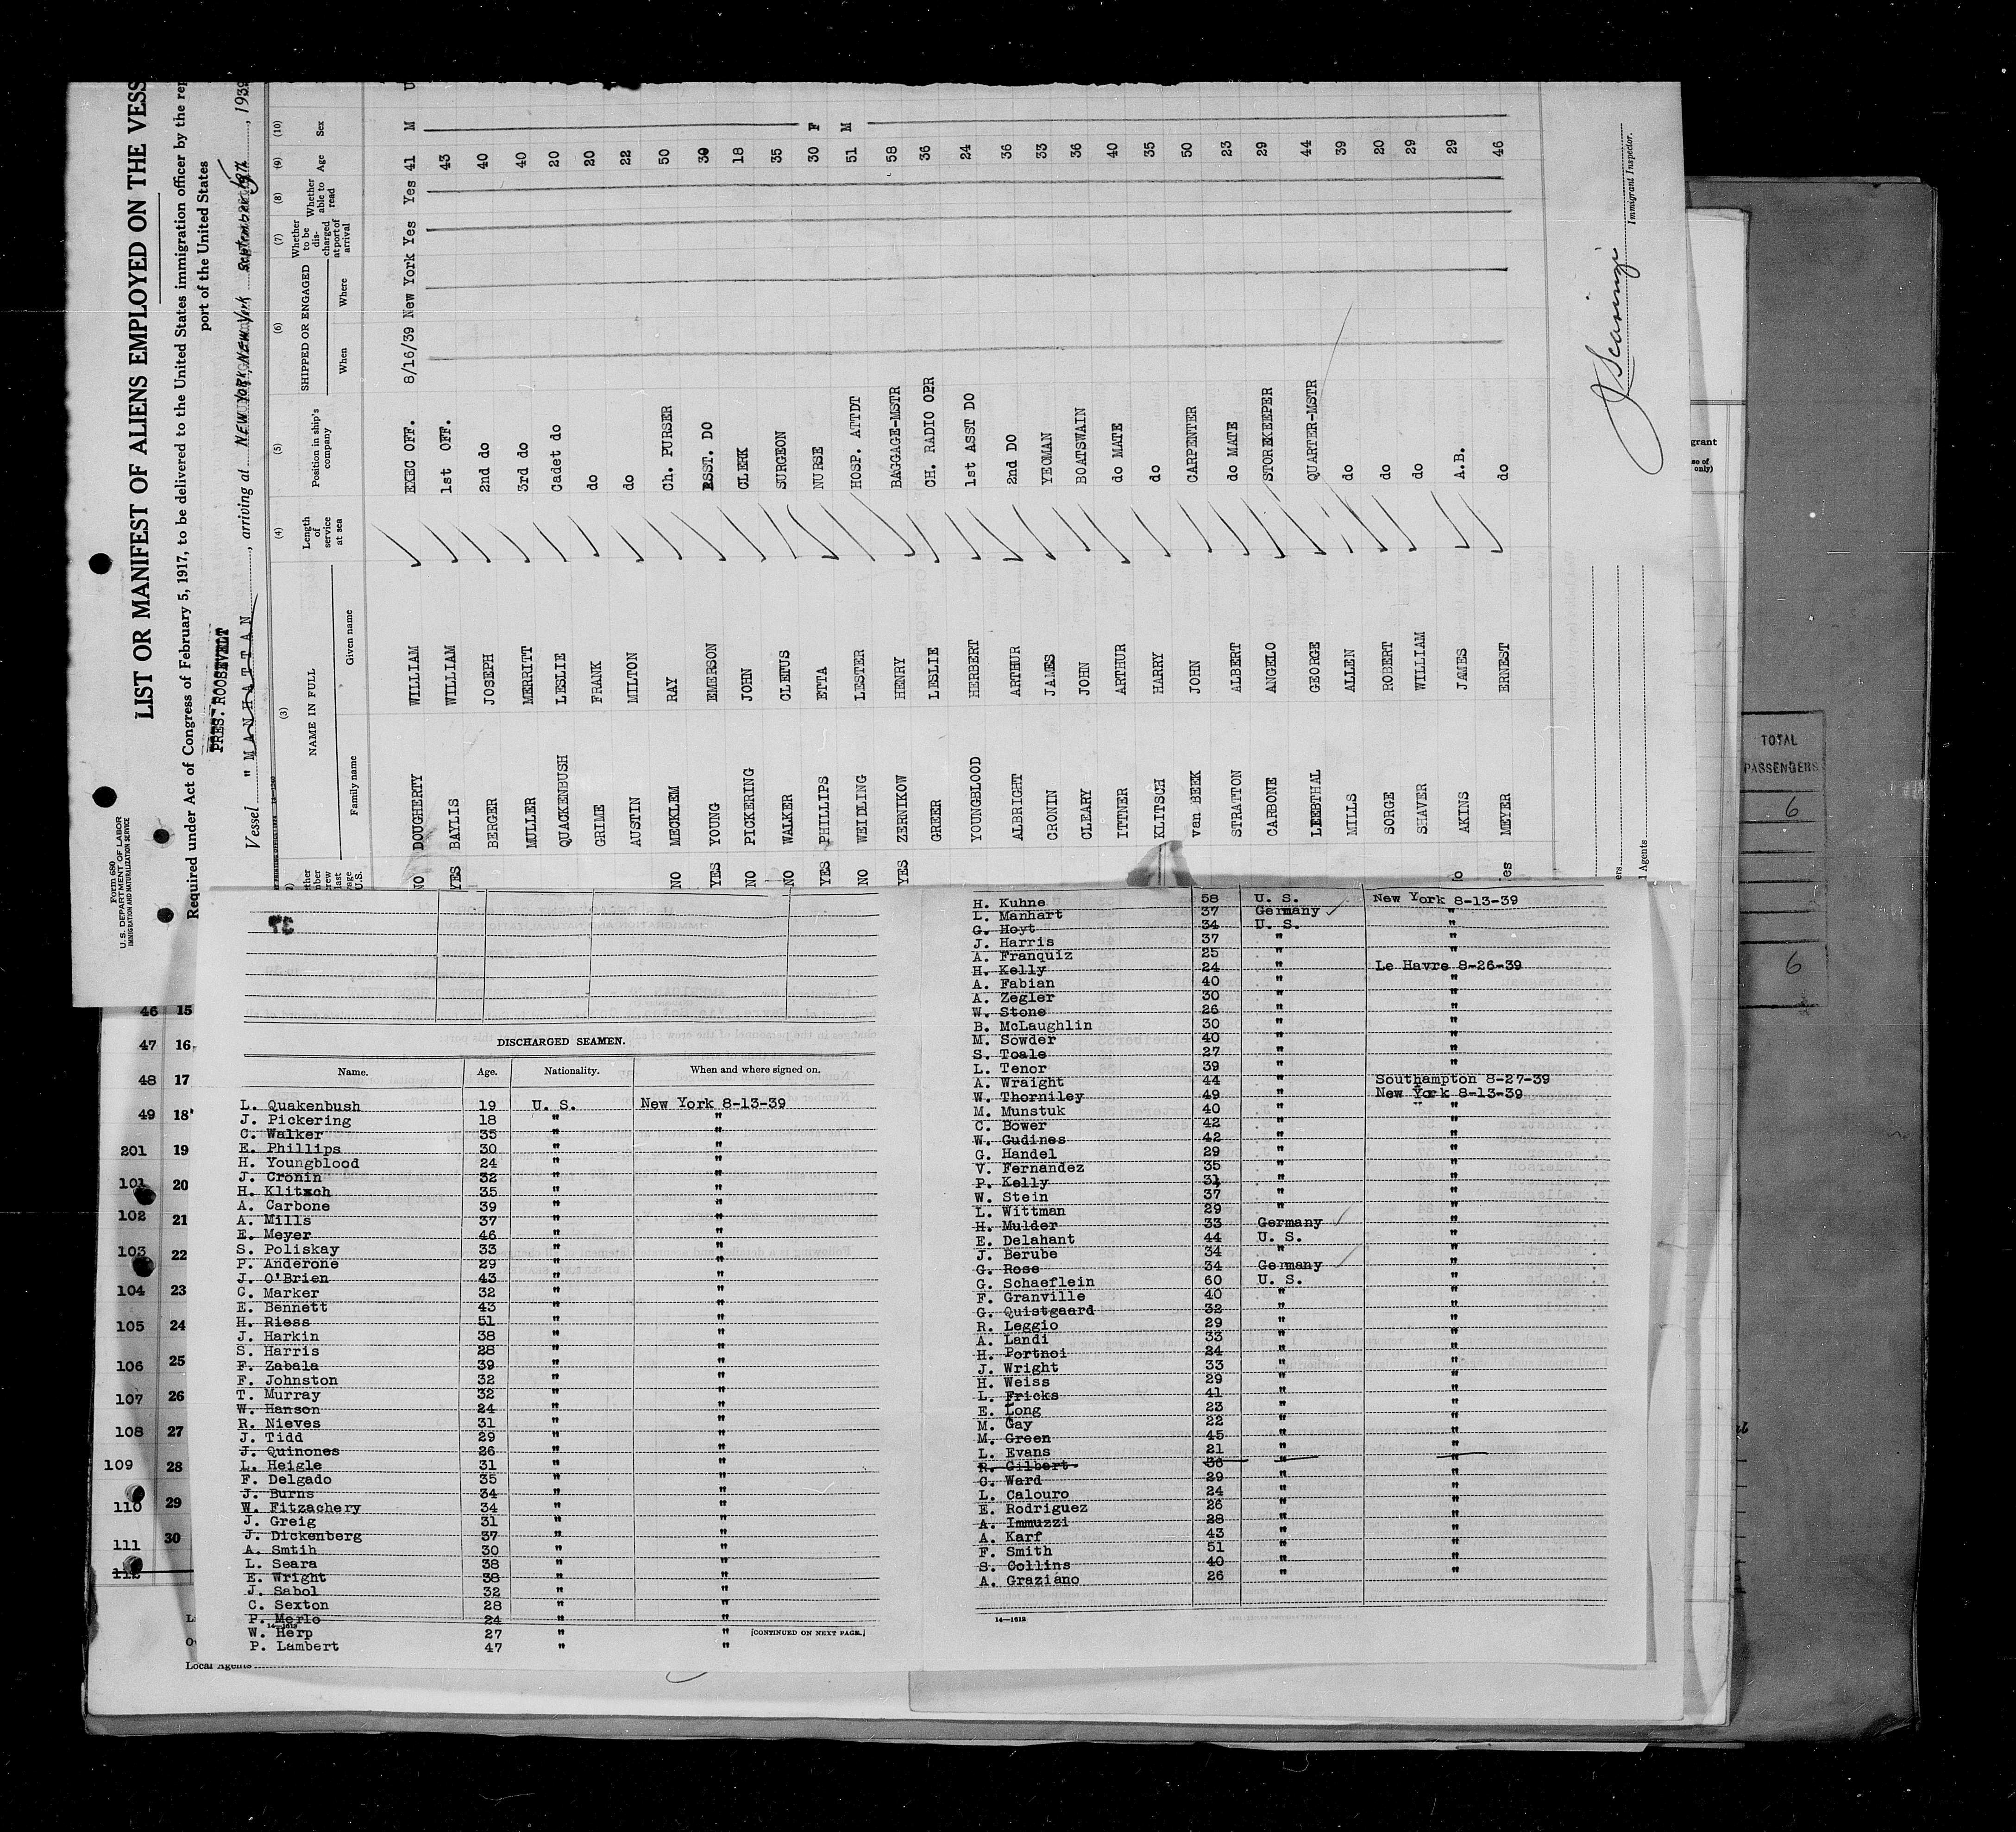 Form 680
U.S. DEPARTMENT OF LABOR
IMMIGRATION AND NATURALIZATION SERVICE
LIST OR MANIFEST OF ALIENS EMPLOYED ON THE VESS
Required under Act of Congress of February 5, 1917, to be delivered to the United States immigration officer by the rep
port of the United States
PRES. ROOSEVELT
Vessel "MANHATTAN, arriving at NEW YORK NEW York September , 1939
(3) (4) (5) (6) (7) (8) (9) (10)
NAME IN FULL Length of service at sea Position in ship's company SHIPPED OR ENGAGED Whether to be discharged at port of arrival Whether able to read Age Sex
Family name Given name When Where
NO DOUGHERTY WILLIAM EXEC OFF. 8/16/39 New York Yes Yes 41 M U
YES BAYLIS WILLIAM 1st OFF. 43
BERGER JOSEPH 2nd do 40
MULLER MERRITT 3rd do 40
QUACKENBUSH LESLIE Cadet do 20
GRIME FRANK do 20
AUSTIN MILTON do 22
NO MECKLEM RAY Ch. PURSER 50
YES YOUNG EMERSON ASST. DO 30
NO PICKERING JOHN CLERK 18
NO WALKER CLETUS SURGEON 35
YES PHILLIPS ETTA NURSE 30 F
NO WEIDLING LESTER HOSP. ATTDT 51 M
YES ZERNIKOW HENRY BAGGAGE-MSTR 58
GREER LESLIE CH. RADIO OPR 36
YOUNGBLOOD HERBERT 1st ASST DO 24
ALBRIGHT ARTHUR 2nd DO 36
CRONIN JAMES YEOMAN 33
CLEARY JOHN BOATSWAIN 36
ITTNER ARTHUR do MATE 40
KLITSCH HARRY do 35
van BEEK JOHN CARPENTER 50
STRATTON ALBERT do MATE 23
CARBONE ANGELO STOREKEEPER 29
LEESTHAL GEORGE QUARTER-MSTR 44
MILLS ALLEN do 39
SORGE ROBERT do 20
SHAVER WILLIAM do 29
AKINS JAMES A.B. 29
MEYER ERNEST do 46
Immigrant Inspector.
TOTAL
PASSENGERS
6
6
46 15
47 16
48 17
49 18
201 19
101 20
102 21
103 22
104 23
105 24
106 25
107 26
108 27
109 28
110 29
111 30
112
Local Agents
DISCHARGED SEAMEN.
Name. Age. Nationality. When and where signed on.
L. Quakenbush 19 U. S. New York 8-13-39
J. Pickering 18 " "
C. Walker 35 " "
E. Phillips 30 " "
H. Youngblood 24 " "
J. Cronin 32 " "
H. Klitsch 35 " "
A. Carbone 39 " "
A. Mills 37 " "
E. Meyer 46 " "
S. Poliskay 33 " "
P. Anderone 29 " "
J. O'Brien 43 " "
C. Marker 32 " "
E. Bennett 43 " "
H. Riess 51 " "
J. Harkin 38 " "
S. Harris 28 " "
F. Zabala 39 " "
F. Johnston 32 " "
T. Murray 32 " "
W. Hanson 24 " "
R. Nieves 31 " "
J. Tidd 29 " "
J. Quinones 26 " "
L. Heigle 31 " "
F. Delgado 35 " "
J. Burns 34 " "
W. Fitzachery 34 " "
J. Greig 31 " "
J. Dickenberg 37 " "
A. Smtih 30 " "
L. Seara 38 " "
E. Wright 38 " "
J. Sabol 32 " "
C. Sexton 28 " "
P. Merlo 24 " "
W. Herp 27 " "
P. Lambert 47 " "
14—1612
[CONTINUED ON NEXT PAGE.]
H. Kuhne 58 U. S. New York 8-13-39
L. Manhart 37 Germany "
G. Hoyt 34 U. S. "
J. Harris 37 " "
A. Franquiz 25 "
H. Kelly 24 " Le Havre 8-26-39
A. Fabian 40 " "
A. Zegler 30 " "
W. Stone 26 " "
B. McLaughlin 30 " "
M. Sowder 40 " "
S. Toale 27 " "
L. Tenor 39 " "
A. Wraight 44 " Southampton 8-27-39
W. Thorniley 49 " New York 8-13-39
M. Munstuk 40 " "
C. Bower 42 " "
W. Gudines 42 " "
G. Handel 29 " "
V. Fernandez 35 " "
P. Kelly 31 " "
W. Stein 37 " "
L. Wittman 29 " "
H. Mulder 33 Germany "
E. Delahant 44 U. S. "
J. Berube 34 " "
G. Rose 34 Germany "
G. Schaeflein 60 U. S. "
F. Granville 40 " "
G. Quistgaard 32 " "
R. Leggio 29 " "
A. Landi 33 " "
H. Portnoi 24 " "
J. Wright 33 " "
H. Weiss 29 " "
L. Fricks 41 " "
E. Long 23 " "
M. Gay 22 " "
M. Green 45 " "
L. Evans 21 " "
R. Gilbert 36 " "
C. Ward 29 " "
L. Calouro 24 " "
E. Rodriguez 26 " "
A. Immuzzi 28 " "
A. Karf 43 " "
F. Smith 51 " "
S. Collins 40 " "
A. Graziano 26 " "
14—1612